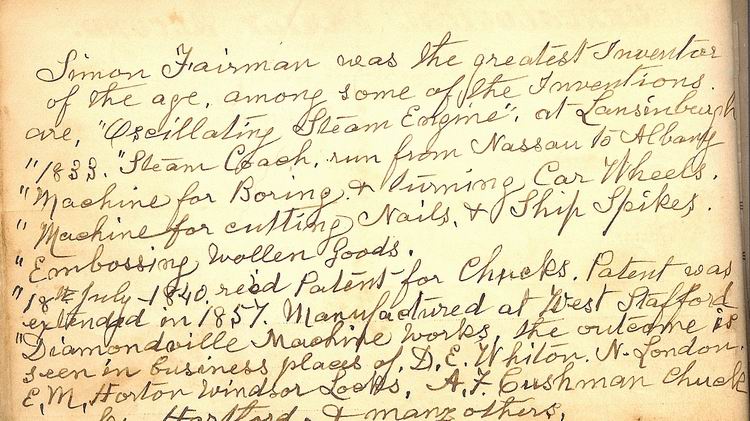 Simon Fairman was the greatest Inventor
of the age, among some of the Inventions.
are, "Oscillating Steam Engine", at Lansinburgh
"1833. "Steam Coach, run from Nassau to Albany
"Machine for Boring & Turning Car Wheels.
"Machine for cutting Nails, & Ship Spikes.
"Embossing Wollen Goods.
"18th July 1840. rec'd Patent for Chucks. Patent was
extended in 1857. Manufactured at West Stafford
"Diamondville Machine Works, the outcome is
seen in business places of, D. E. Whiton. N. London.
E, M, Horton Windsor Locks, A. F. Cushman Chuck
Hartford, & many others,